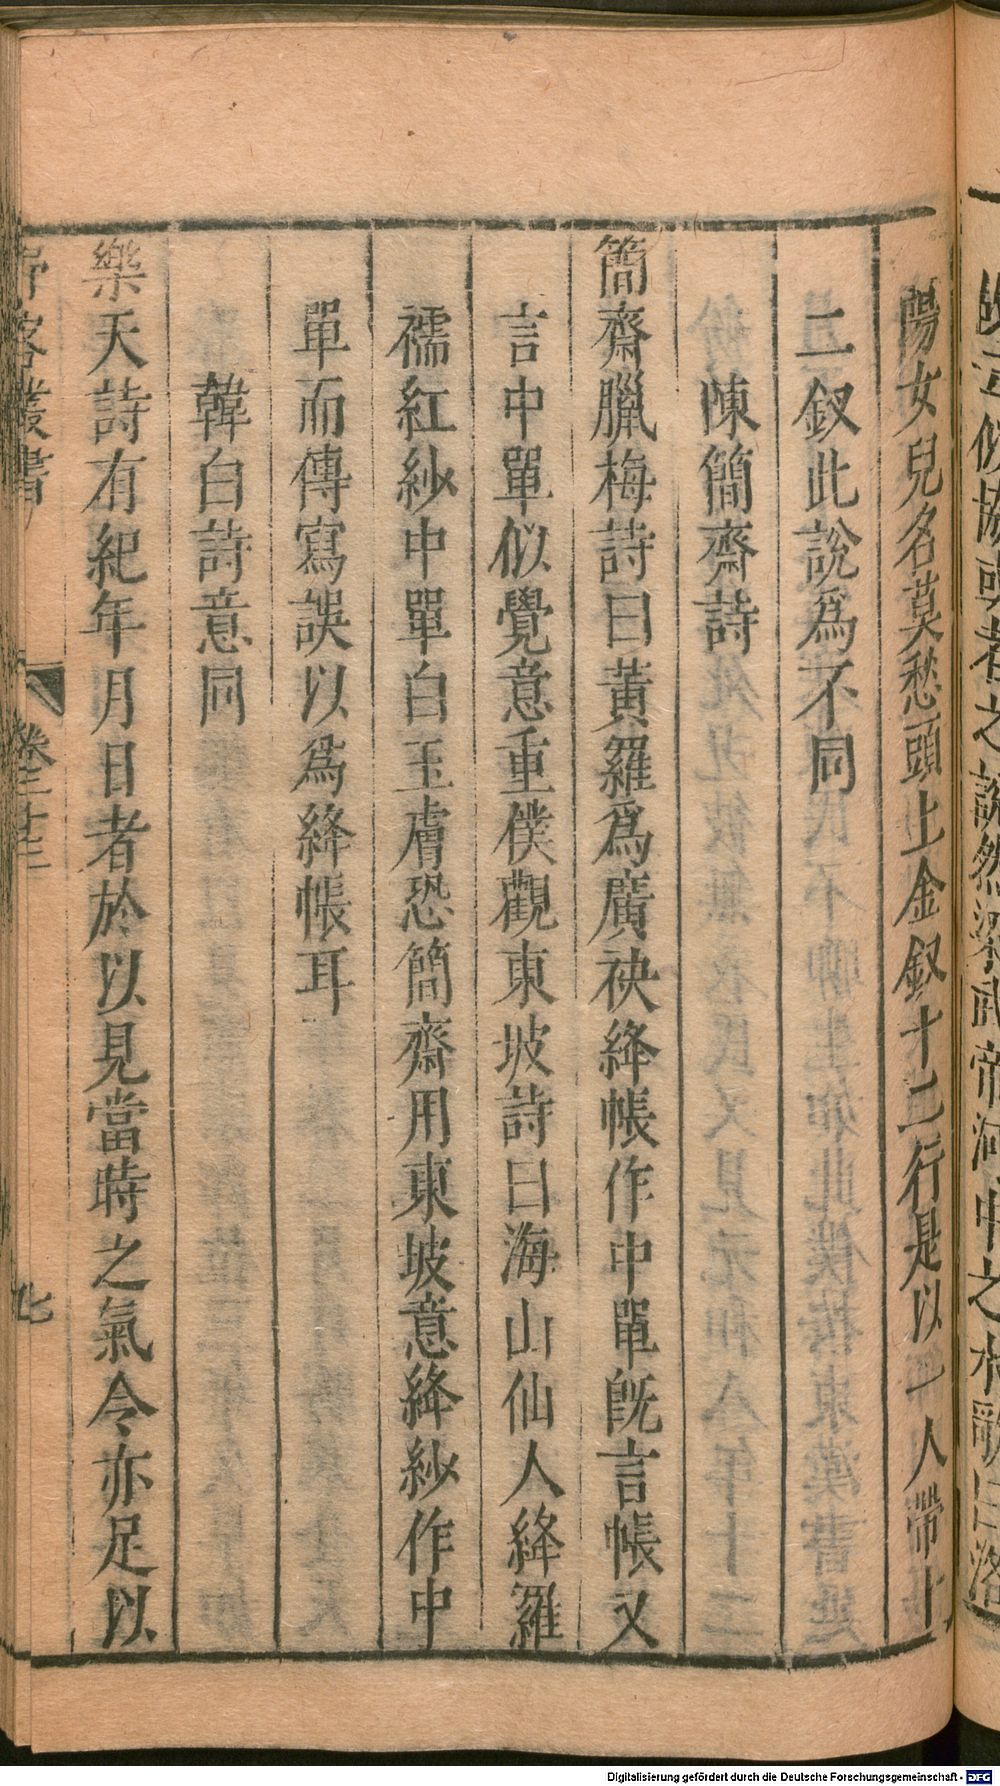 陽女兒名莫愁頭上金釵十二行是以一人帶十
二釵此說爲不同
陳簡齋詩
簡齋臘梅詩曰黃羅爲廣袂絳帳作中單旣言帳又
言中單似覺意重僕觀東坡詩曰海山仙人絳羅
襦紅紗中單白玉膚恐簡齋用東坡意絳紗作中
單而傳寫誤以爲絳帳耳
韓白詩意同
樂天詩有紀年月日者於以見當時之氣令亦足以
野客叢書
卷二十三
七
Digitalisierung gefördert durch die Deutsche Forschungsgemeinschaft - DFG